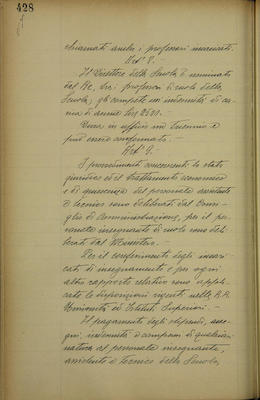 428
chiamati anche i professori incaricati.
Art. 8. -
Il Direttore della Scuola è nominato
dal Re, tra i professori di ruolo della
Scuola; gli compete un'indennità di ca-
rica di annue lire 2500.
Dura in ufficio un triennio e
può essere confermato. -
Art. 9. -
I provvedimenti concernenti lo stato
giuridico ed il trattamento economico
e di quiescenza del personale assistente
e tecnico sono deliberati dal Consi-
glio di Amministrazione, per il per-
sonale insegnante di ruolo sono deli-
berati dal Ministero. -
Per il conferimento degli incari-
chi di insegnamento e per ogni
altro rapporto relativo sono applica-
te le disposizioni vigenti nelle R.R.
Università ed Istituti Superiori. -
Il pagamento degli stipendi, asse-
gni, indennità o compensi di qualsiasi
natura al personale insegnante,
assistente e tecnico della Scuola,